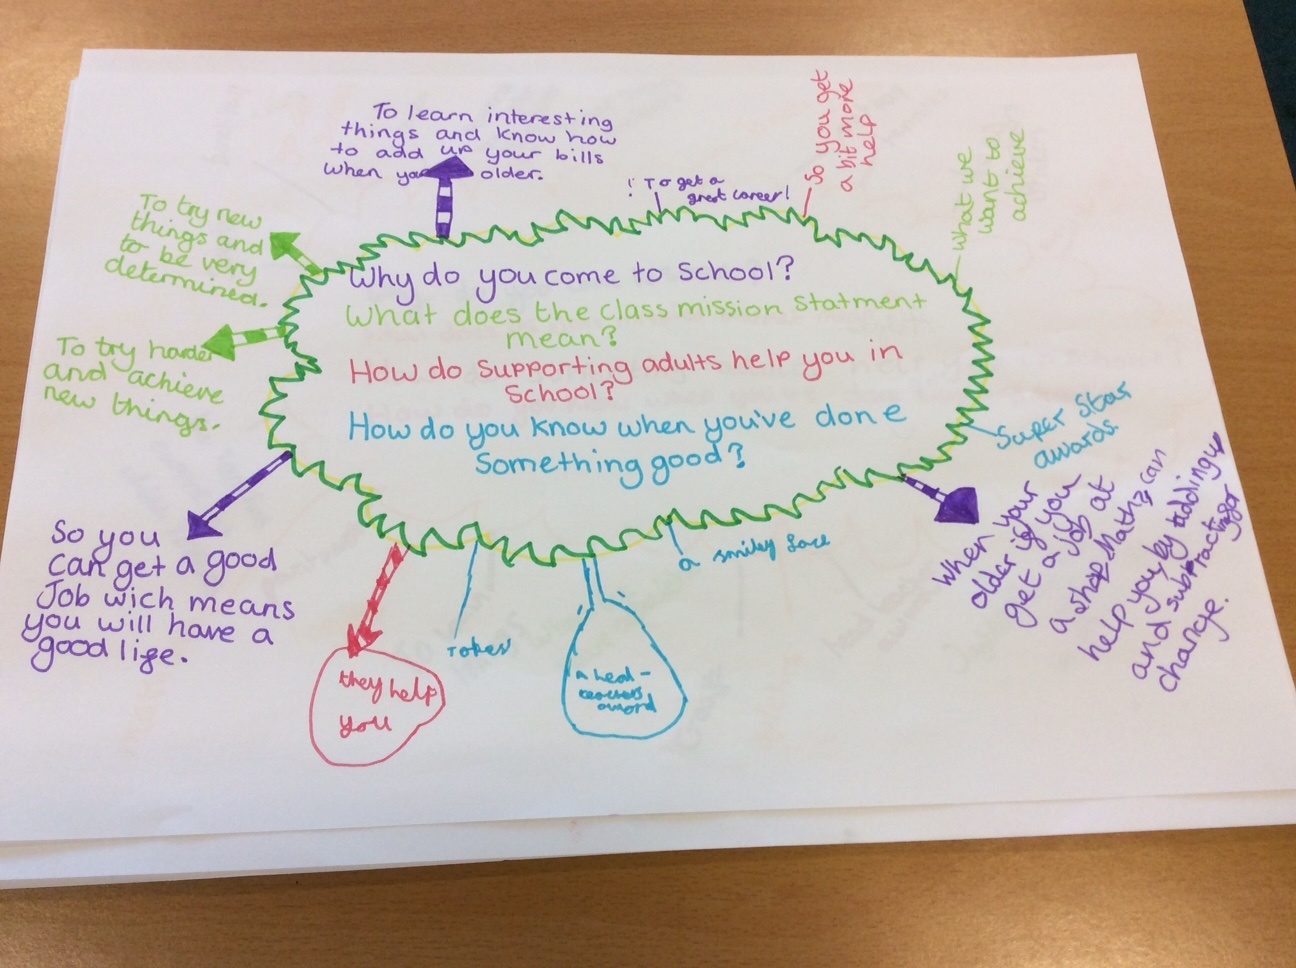 To learn interesting
things and know how
to add up your bills
when you older.
! To get a
great career!
So you get
a bit more
help
what we
want to
achieve
To try new
things and
to be very
determined.
To try harder
and achieve
new things.
Why do you come to School?
What does the class mission Statment
mean?
How do Supporting adults help you in
School?
How do you know when you've done
Something good?
Super Star
awards.
So you
can get a good
Job wich means
you will have a
good life.
they help
you
Token
a head-
teachers
award
a smiley face
When your
older if you
get a Job at
a shop Maths can
help you by adding up
and subtracting
change.